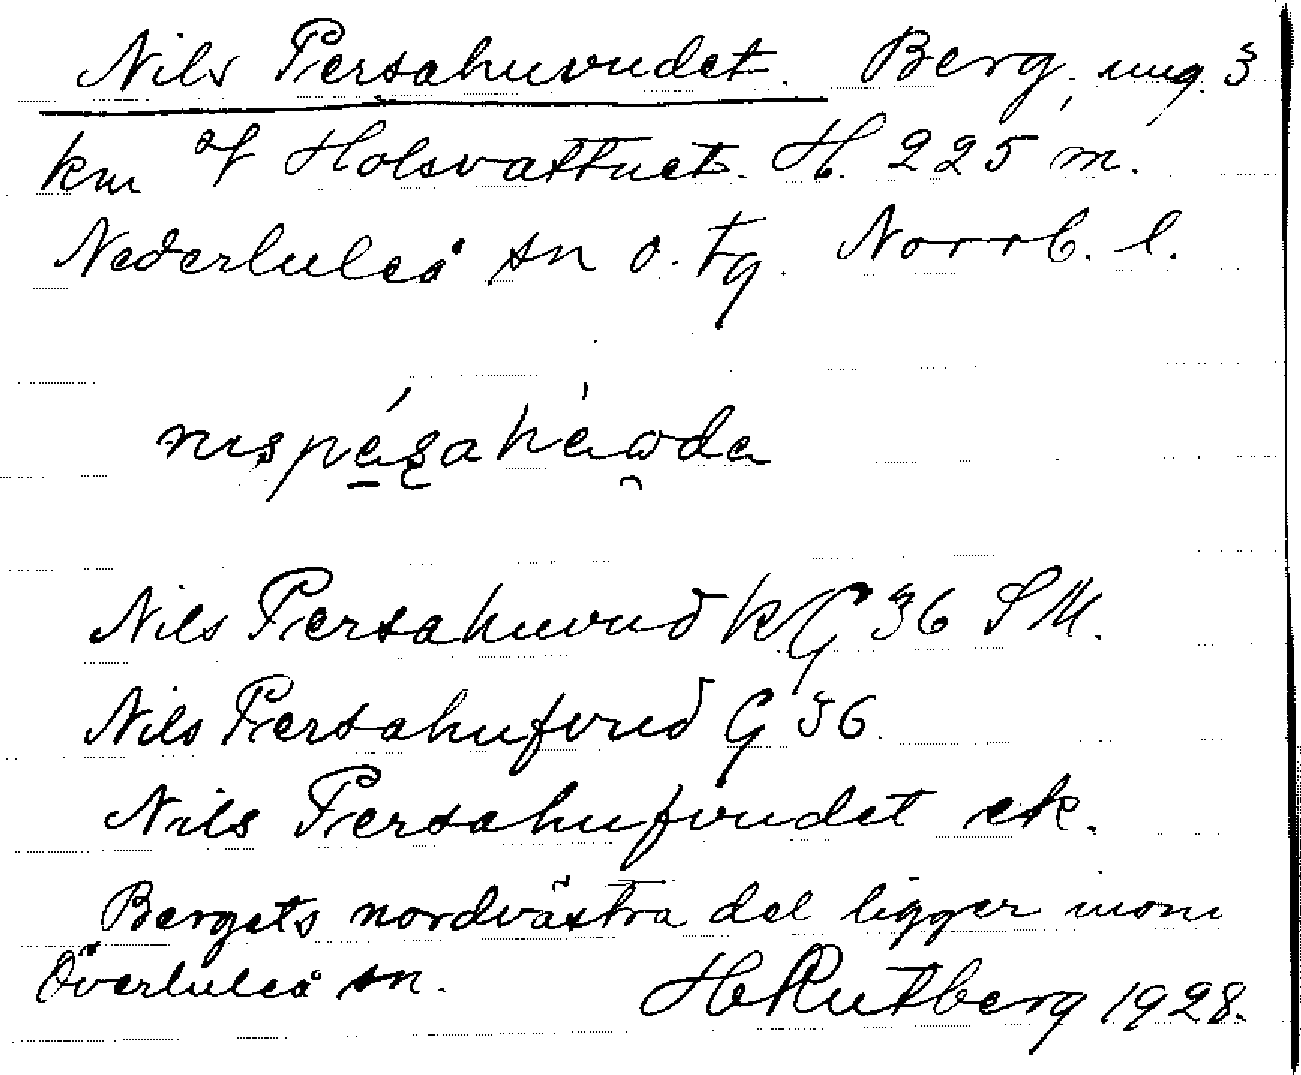 Nils Persahuvudet. Berg, ung. 3
km of Holsvattnet. H. 225 m.
Nederluleå sn o. tg. Norrb. l.
Nils Persahuvud k G 36 S M.
Nils Persahufvud G 36
Nils Persahufvudet ek.
Bergets nordvästra del ligger inom
Överluleå sn. H Rutberg 1928.